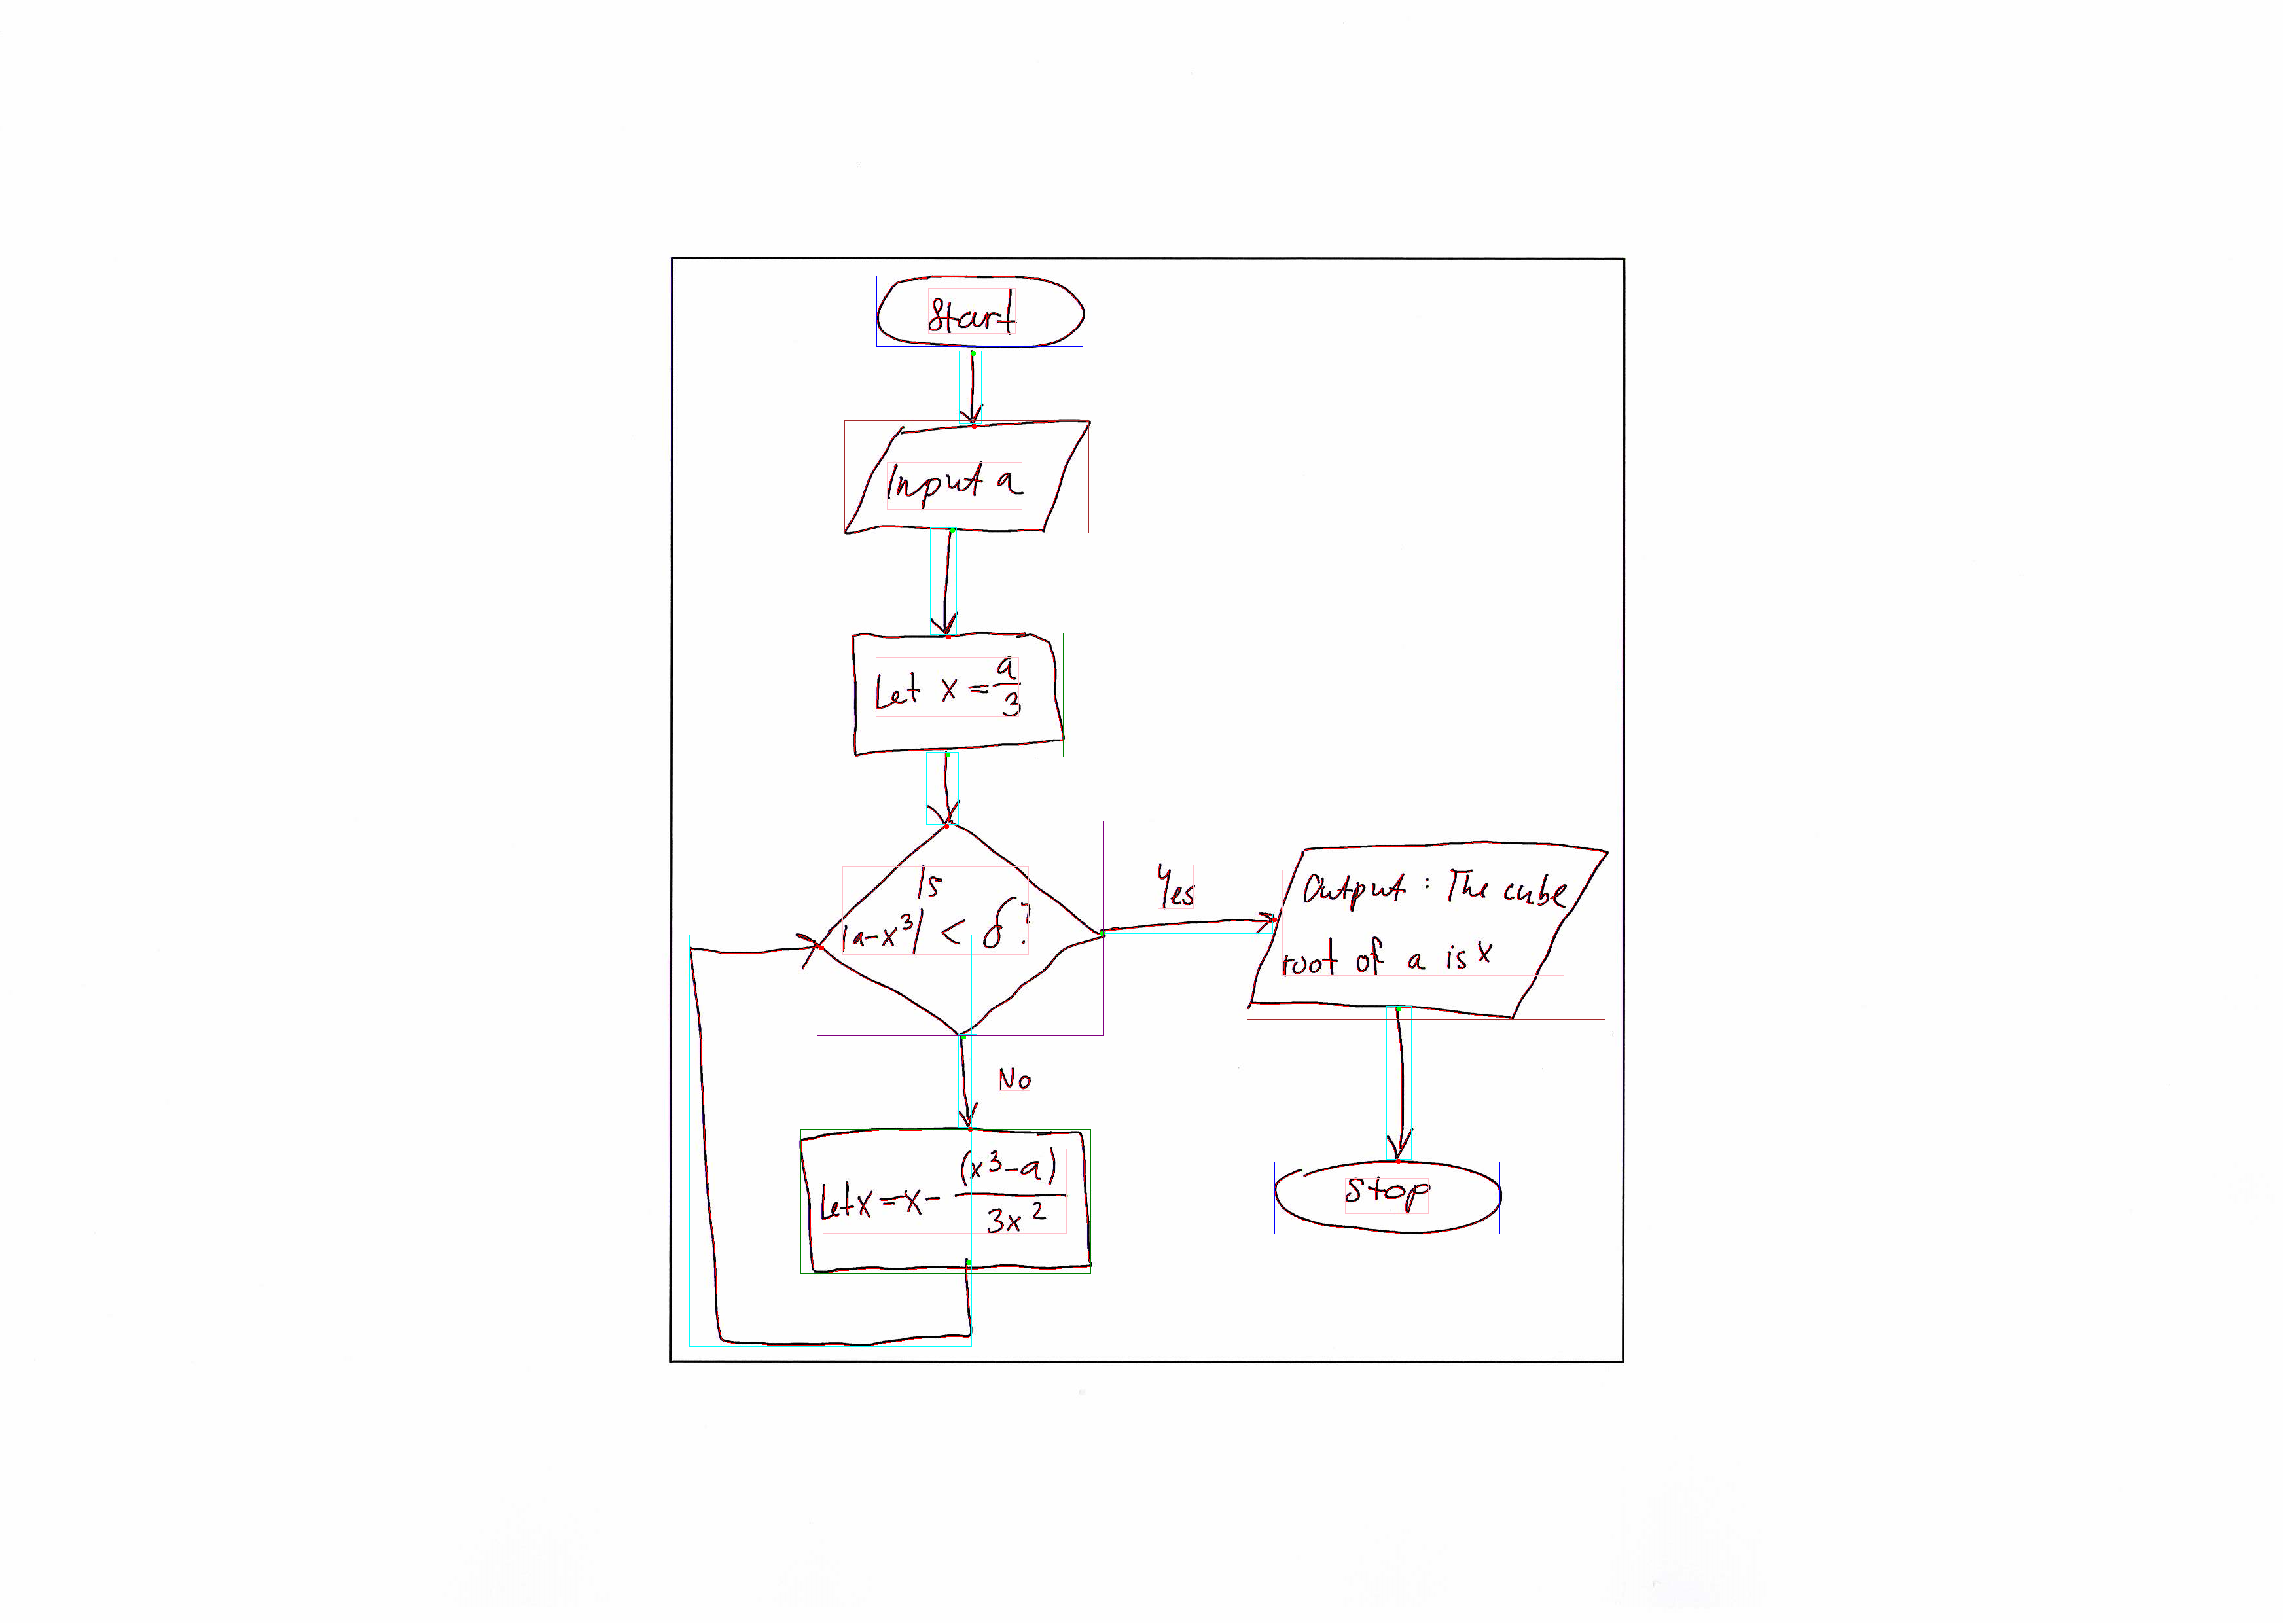 Start
Input a
Let x = a/3
Is
|a-x³| < δ?
Yes
Output : The cube
root of a is x
No
Let x = x - (x³-a)/3x²
Stop